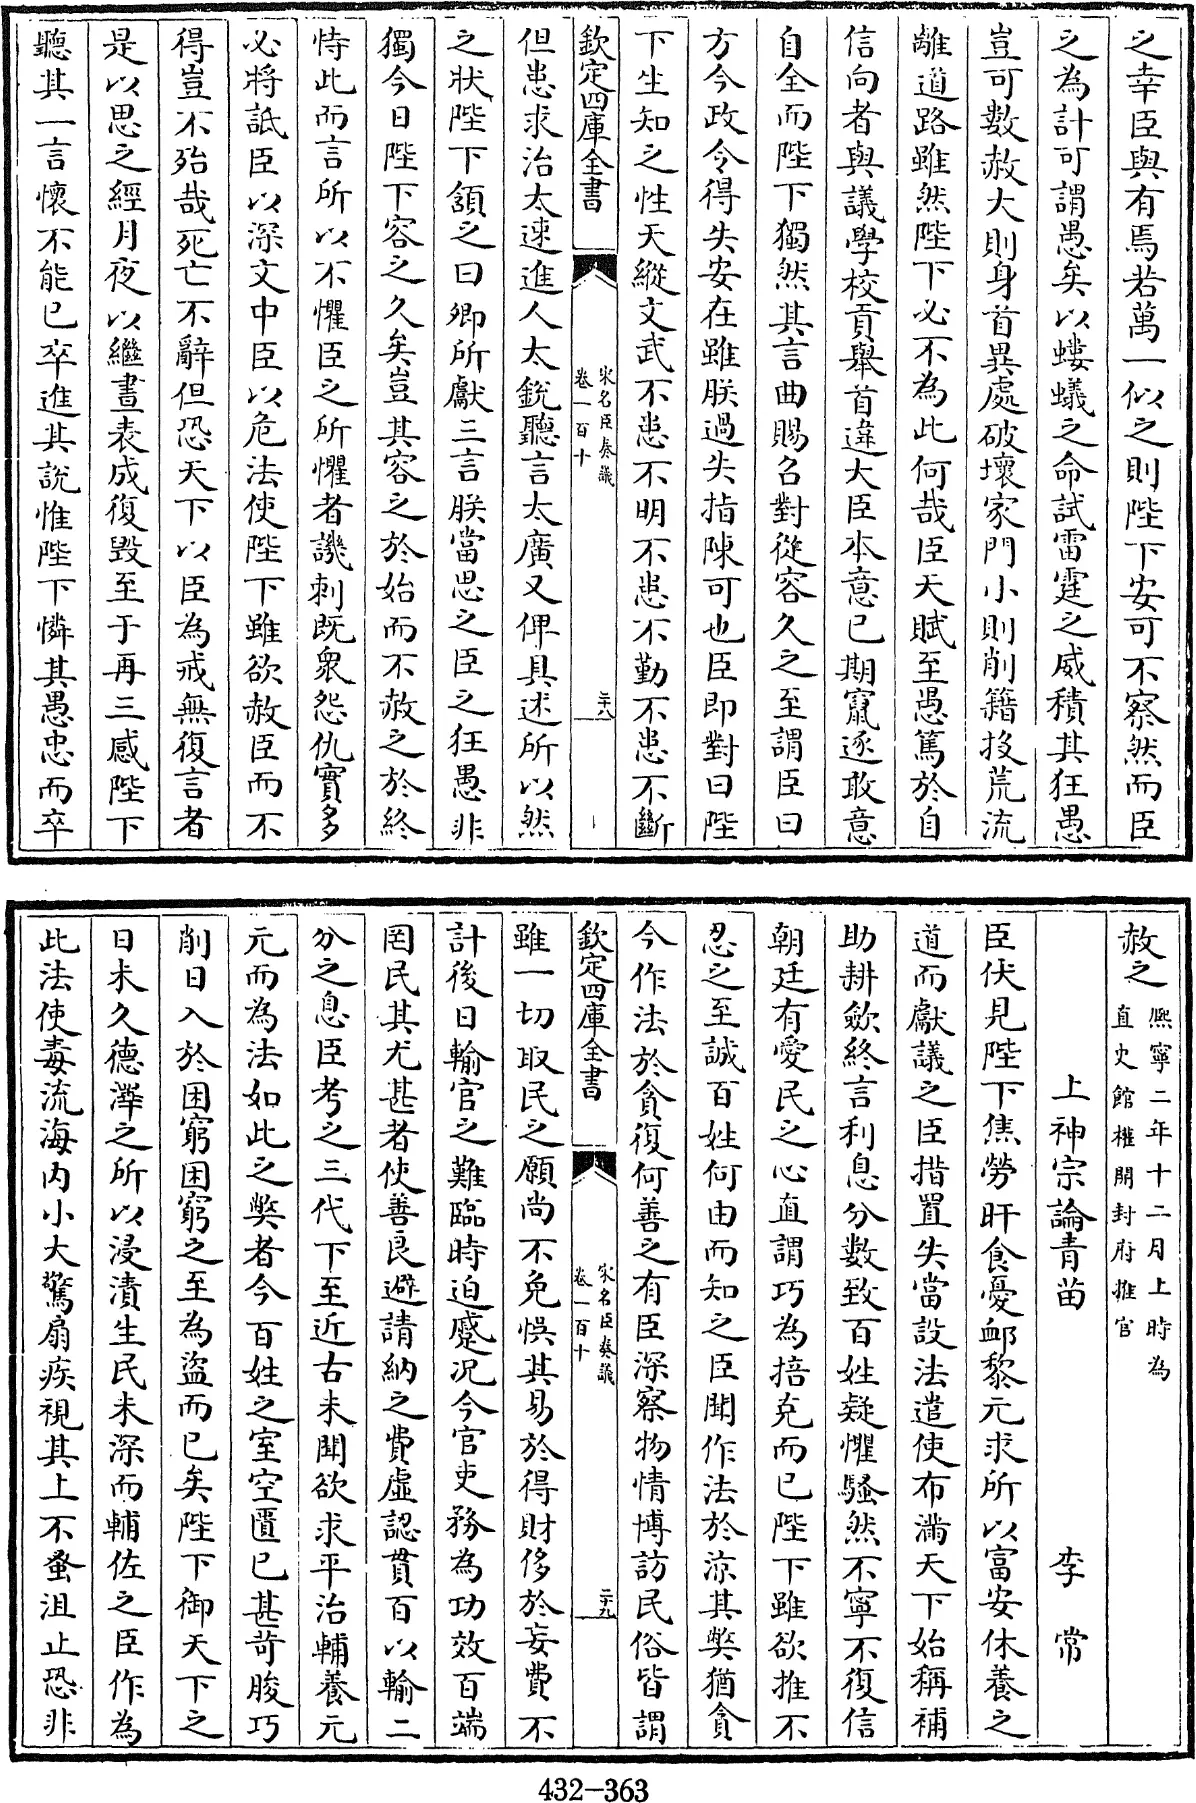 之幸臣與有焉若萬一似之則陛下安可不察然而臣
之為計可謂愚矣以螻蟻之命試雷霆之威積其狂愚
豈可數赦大則身首異處破壞家門小則削籍投荒流
離道路雖然陛下必不為此何哉臣天賦至愚篤於自
信向者與議學校貢舉首違大臣本意已期竄逐敢意
自全而陛下獨然其言曲賜召對從容久之至謂臣曰
方今政令得失安在雖朕過失指陳可也臣即對曰陛
下生知之性天縱文武不患不明不患不勤不患不斷
欽定四庫全書
宋名臣奏議
卷一百十
二十八
但患求治太速進人太銳聽言太廣又俾具述所以然
之狀陛下頷之曰卿所獻三言朕當思之臣之狂愚非
獨今日陛下容之久矣豈其容之於始而不赦之於終
恃此而言所以不懼臣之所懼者譏刺既衆怨仇實多
必將詆臣以深文中臣以危法使陛下雖欲赦臣而不
得豈不殆哉死亡不辭但恐天下以臣為戒無復言者
是以思之經月夜以繼晝表成復毀至于再三感陛下
聽其一言懷不能已卒進其說惟陛下憐其愚忠而卒
赦之熙寧二年十二月上時為
直史館權開封府推官
上神宗論青苗 李常
臣伏見陛下焦勞旰食憂卹黎元求所以富安休養之
道而獻議之臣措置失當設法遣使布滿天下始稱補
助耕斂終言利息分數致百姓疑懼騷然不寧不復信
朝廷有愛民之心直謂巧為掊克而已陛下雖欲推不
忍之至誠百姓何由而知之臣聞作法於涼其弊猶貪
今作法於貪復何善之有臣深察物情博訪民俗皆謂
欽定四庫全書
宋名臣奏議
卷一百十
二十九
雖一切取民之願尚不免悞其易於得財侈於妄費不
計後日輸官之難臨時迫蹙况今官吏務為功效百端
罔民其尤甚者使善良避請納之費虛認貫百以輸二
分之息臣考之三代下至近古未聞欲求平治輔養元
元而為法如此之弊者今百姓之室空匱已甚苛朘巧
削日入於困窮困窮之至為盜而已矣陛下御天下之
日未久德澤之所以浸漬生民未深而輔佐之臣作為
此法使毒流海内小大驚扇疾視其上不蚤沮止恐非
432-363